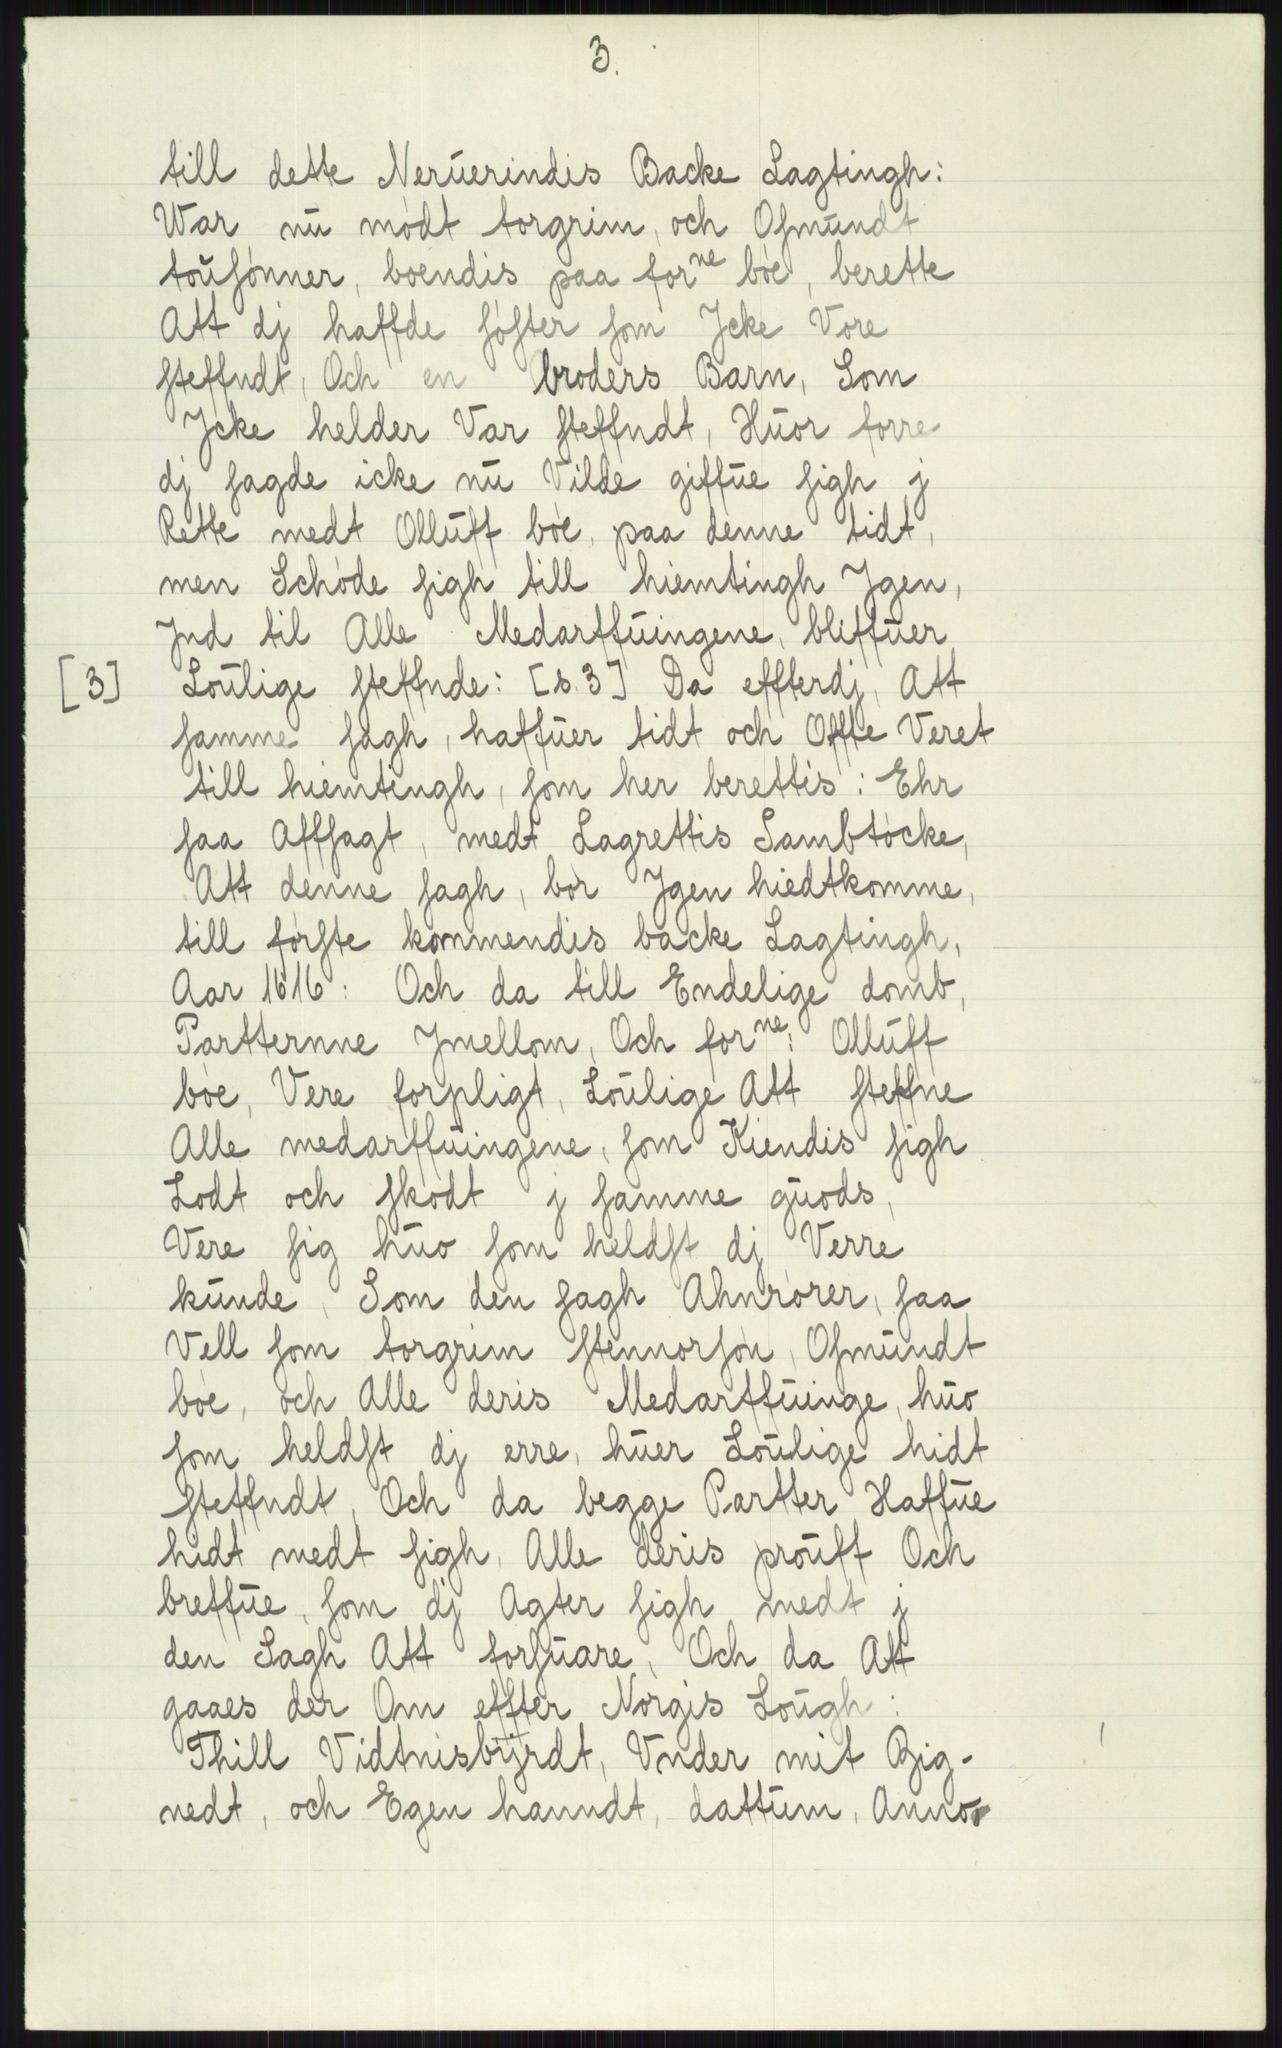 3.
till dette Neruerindis Backe Lagtingh:
War nu mødt torgrim, och Osmundt
tousønner, boendis paa forne bøe, berette
Att dj haffde søster som Jcke Vore
steffndt, Och en broders Barn, Som
Jcke helder Var steffndt, Huor forre
dj sagde icke nu Vilde giffue sigh j
Rette medt Olluff bøe, paa denne tidt,
men Schøde sigh till hiemtingh Jgen,
Jnd til Alle Medarffuingene, bliffuer
[3] Loulige steffnde: [s. 3] Da effterdj, Att
samme sagh, haffuer tidt och Offte Veret
till hiemtingh, som her berettis: Ehr
saa Affsagt, medt Lagrettis Sambtøcke,
Att denne sagh, bør Jgen hiedtkomme,
till første kommendis backe Lagtingh,
Aar 1616: Och da till Endelige domb,
Partternne Jmellom, Och forne: Olluff
bøe, Vere forpligt, Loulige Att steffne
Alle medarffuingene, som Kiendis sigh
Lodt och skødt j samme guods,
Vere sig huo som heldst dj Verre
kunde, Som den sagh Ahnrører, saa
Vell som torgrim stennorsøn, Osmundt
bøe, och Alle deris Medarffuinge, huo
som heldst dj erre, huer Loulige hidt
steffndt, Och da begge Partter Haffue
hidt medt sigh, Alle deris prouff Och
breffue, som dj Agter sigh medt j
den Sagh Att forsuare, Och da Att
gaaes der Om effter Norgis Lough:
Thill Vidtnisbyrdt, Vnder mit Zig-
nedt, och Egen hanndt, dattum, Anno